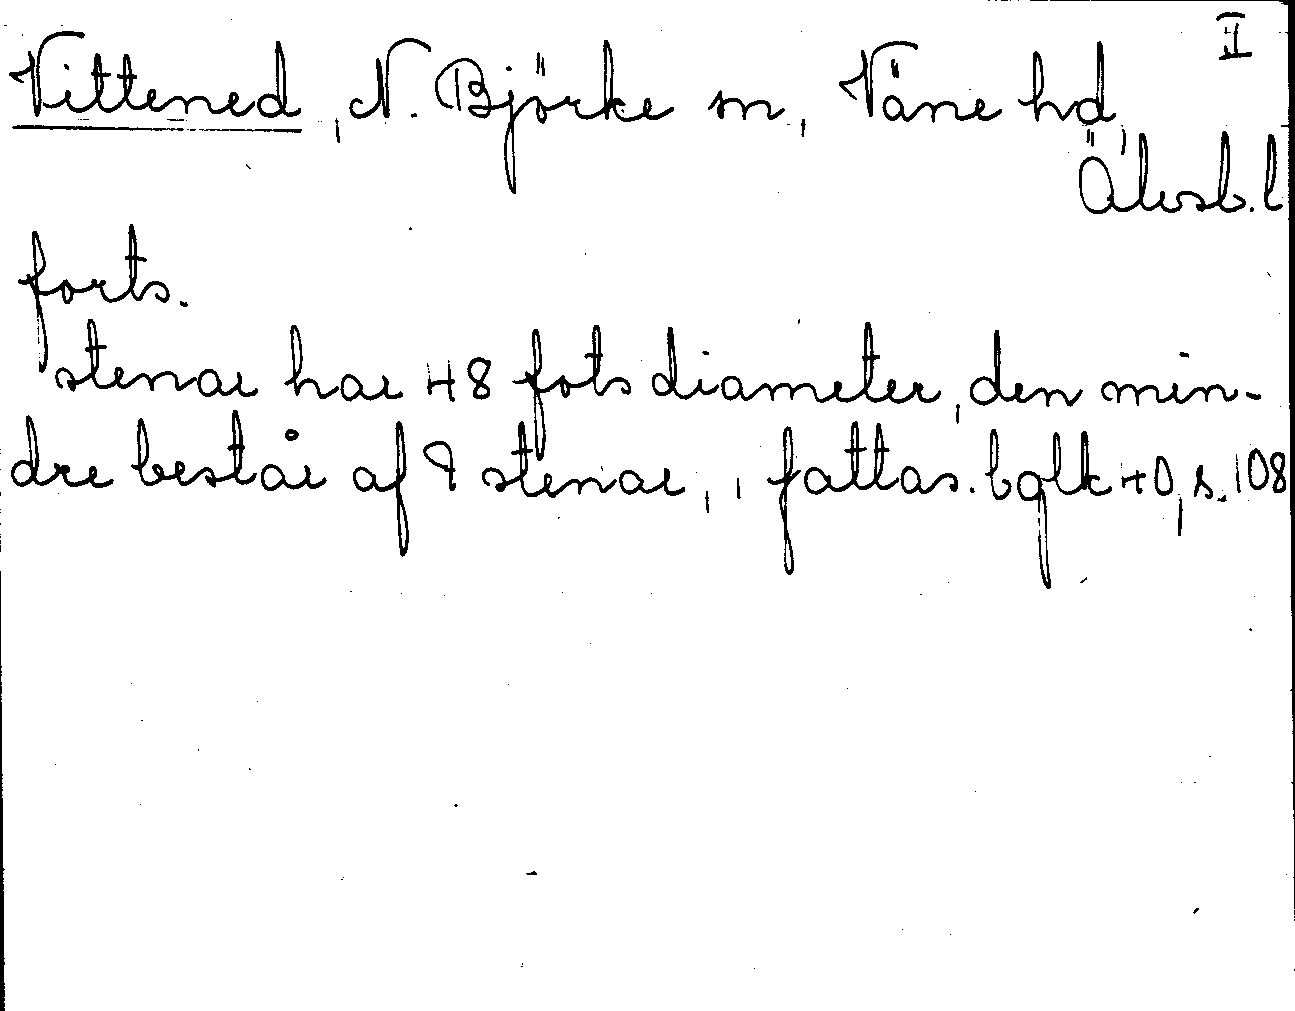 II
Vittened, N. Björke sn, Väne hd,
Älvsb. l
forts.
stenar har 48 fots diameter, den min-
dre består af 9 stenar, 1 fattas. bglk 40, s. 108